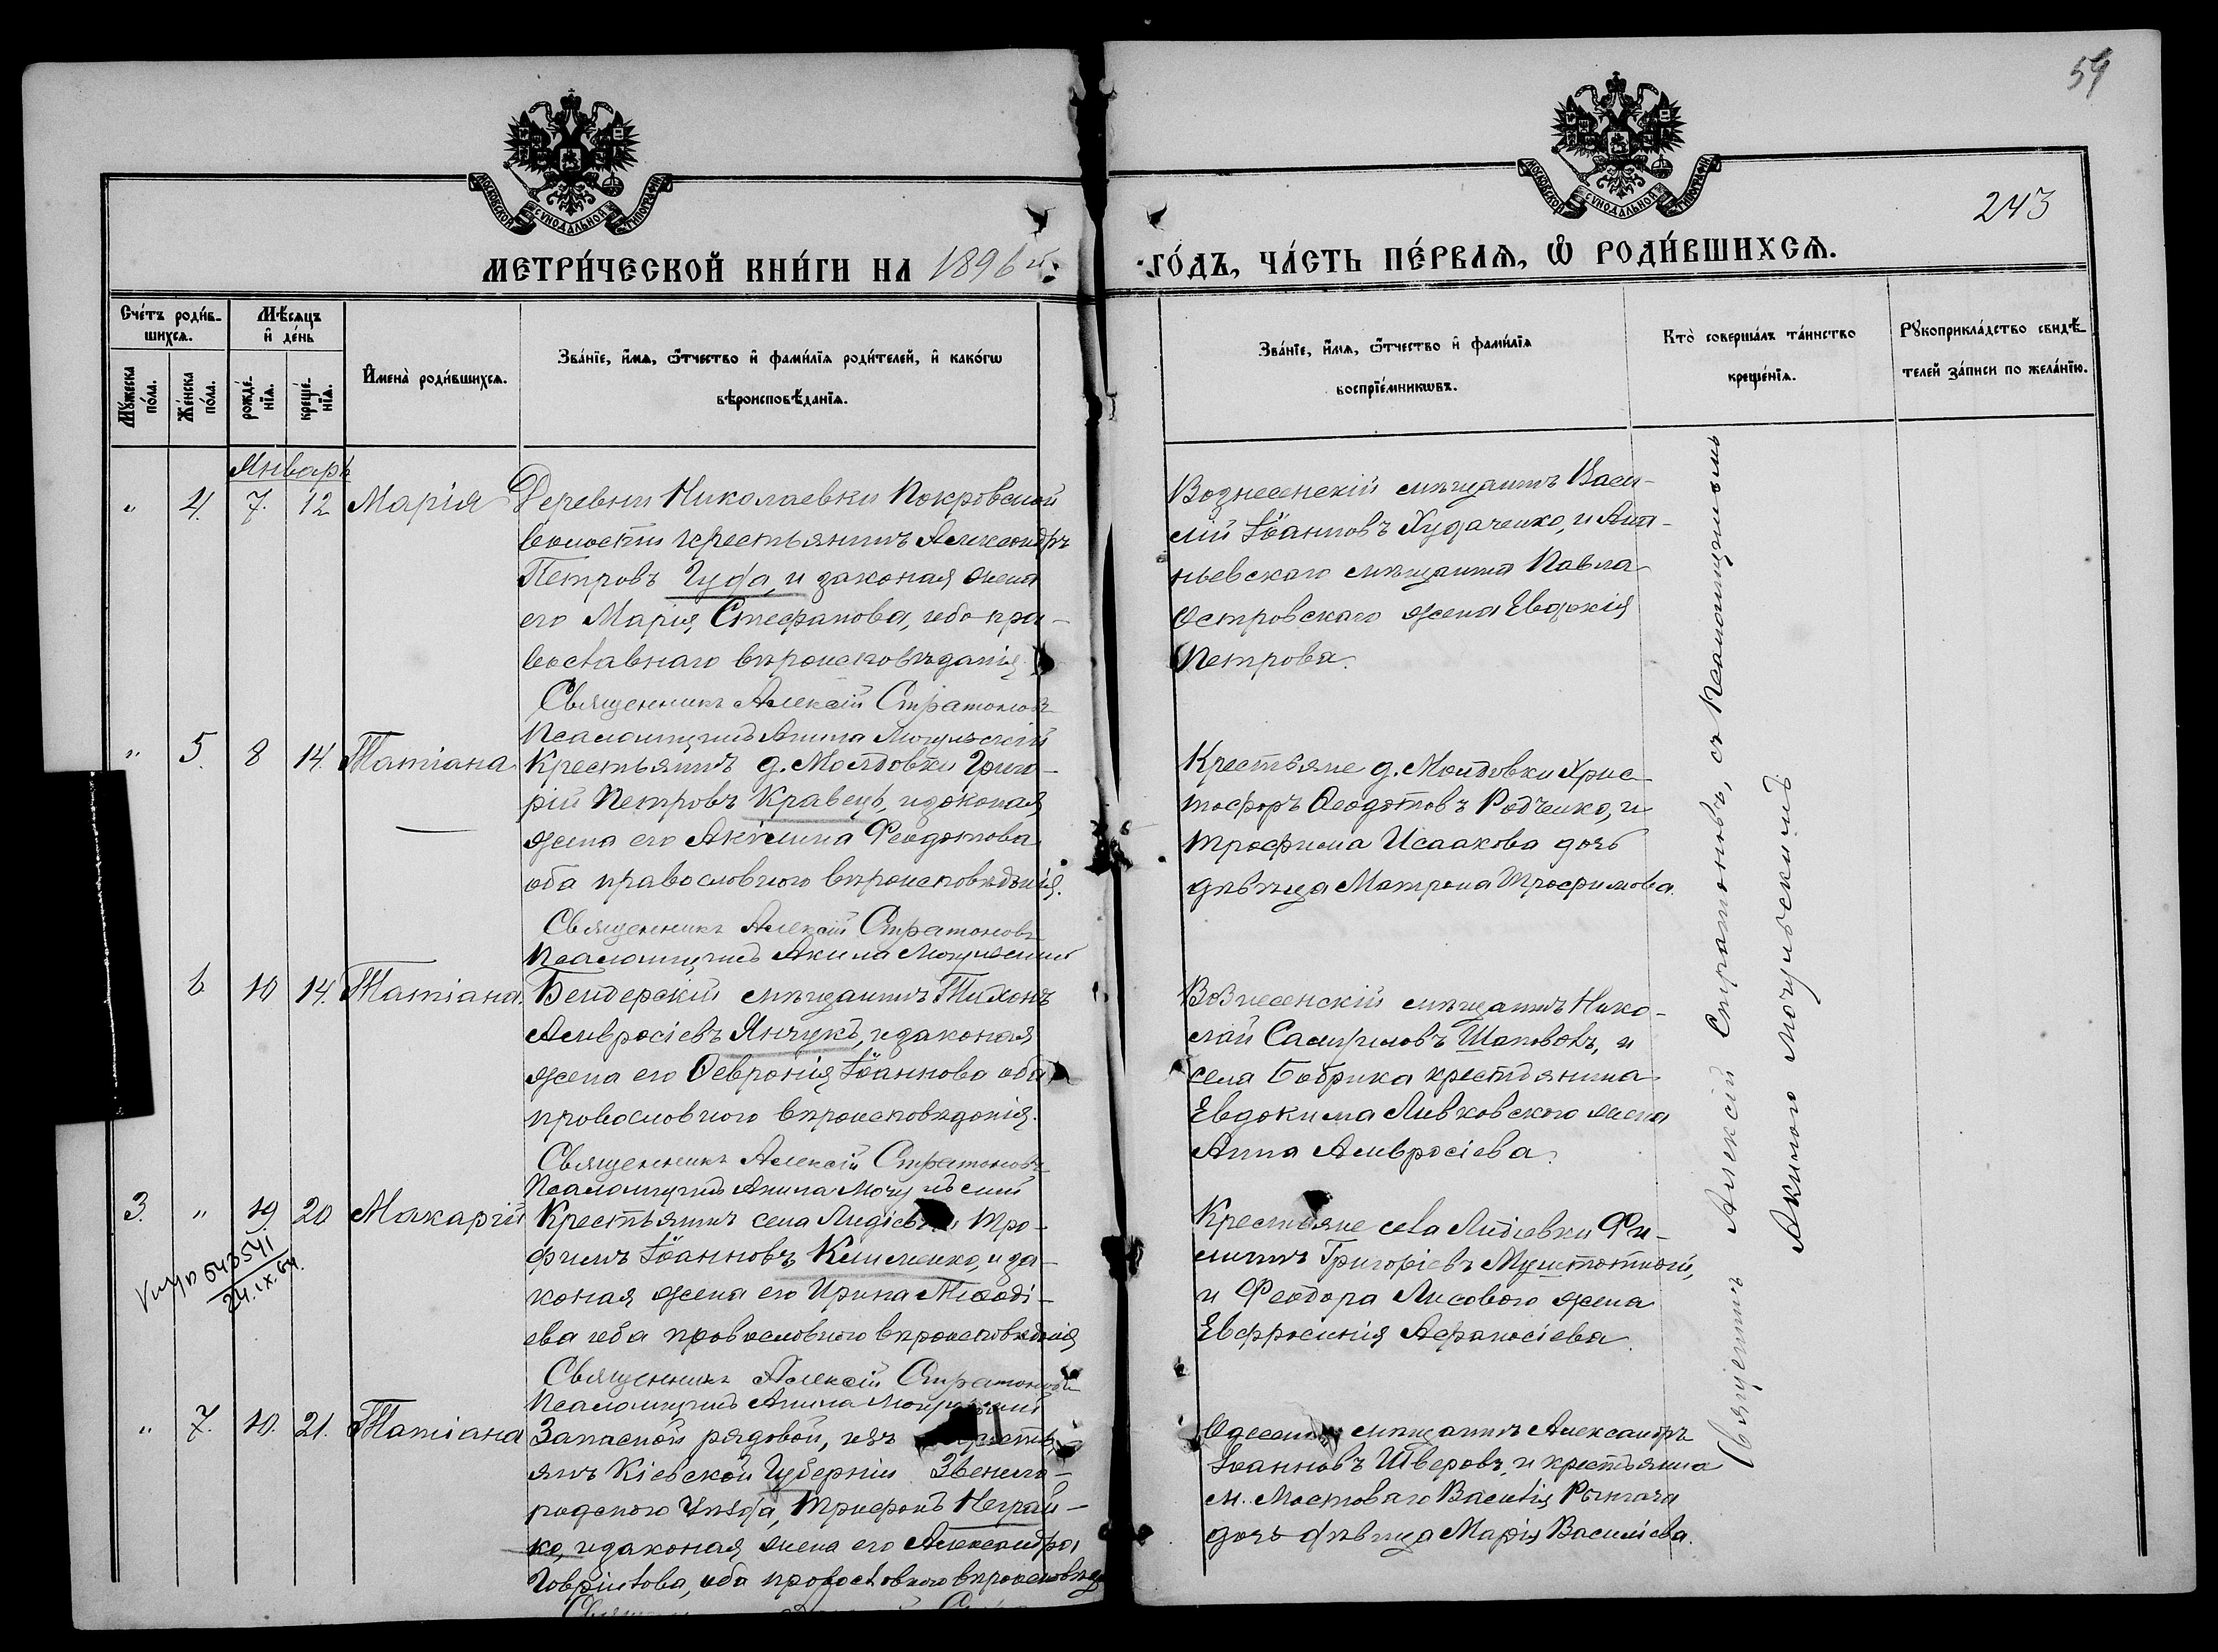 59
243
МОСКОВСКОЙ СѴНОДАЛЬНОЙ ТИПОГРАФІИ
МОСКОВСКОЙ СѴНОДАЛЬНОЙ ТИПОГРАФІИ
МЕТРИ́ЧЕСКОЙ КНИ́ГИ НА 1896 й
ГО́ДЪ, ЧА́СТЬ ПЕ́РВАѦ, Ѡ҆ РОДИ́ВШИХСѦ.
Сче́тъ роди́в-
шихсѧ.
Мѣ́сѧцъ
и҆ де́нь
Мꙋ́жеска
по́ла.
Же́нска
по́ла.
рожде́-
нїѧ.
креще́-
нїѧ.
И҆мена̀ роди́вшихсѧ.
Зва́нїе, и҆́мѧ, ѻ҆́тчество и҆ фами́лїѧ роди́телей, и҆ како́гѡ
вѣроисповѣ́данїѧ.
Зва́нїе, и҆́мѧ, ѻ҆́тчество и҆ фами́лїѧ
воспрїе́мникѡвъ.
Кто̀ соверша́лъ та́инство
креще́нїѧ.
Рꙋкоприкла́дство свидѣ́-
телей за́писи по жела́нїю.
Январь
" 4. 7. 12 Марія Деревни Николаевки Покровской
волости крестьянинъ Александръ
Петровъ Чуба, и законая жена
его Марія Стефанова, оба пра-
вославнаго вѣроисповѣданія
Священникъ Алексій Стратоновъ
Псаломщикъ Акила Могульскій
Вознесенскій мѣщанинъ Васи-
лій Іоанновъ Худаченко, и Ана-
ньевскаго мѣщанина Павла
Островскаго жена Евдокія
Петрова.
" 5. 8 14. Татіана Крестьянинъ д. Молдовки Григо-
рій Петровъ Кравецъ, и законая
жена его Акилина Феодотова
оба православного вѣроисповѣданія.
Священникъ Алексій Стратоновъ
Псаломщикъ Акила Могульскій
Крестьяне д. Молдовки Хрис-
тофоръ Ѳеодотовъ Родченко, и
Трофима Исаакова дочь
дѣвица Матрона Трофимова.
6 10 14. Татіана. Бендерскій мѣщанинъ Тихонъ
Амвросіевъ Янчукъ, и законая
жена его Ѳевронія Іоаннова оба
православного вѣроисповѣданія.
Священникъ Алексій Стратоновъ
Псаломщикъ Акила Могульскій
Вознесенскій мѣщанинъ Нико-
лай Самуиловъ Шаповолъ, и
села Бобрика крестьянина
Евдокима Ливховского жена
Анна Амвросіева.
3. " 19. 20 Макарій Крестьянинъ села Лидіевки Тро-
фимъ Іоанновъ Клименко, и за-
коная жена его Ирина Меѳоді-
ева оба православного вѣроисповѣданія
Священникъ Алексій Стратоновъ
Псаломщикъ Акила Могульскій
543541
24.IX.64.
Крестьяне села Лидіевки Фи-
липпъ Григоріевъ
и Феодора Лисового жена
Евфросинія Афанасіева.
" 7. 10. 21. Татіана Запасной рядовой, изъ крестья-
янъ Кіевской Губерніи Звениго-
родского Уѣзда, Трифонъ Неграй-
ко, и законая жена его Александра
Говріилова, оба православного вѣроисповѣд
Одесскій мѣщанинъ Александръ
Іоанновъ Шверовъ, и крестьянина
м. Мостоваго Василія
дочь дѣвица Марія Василіева.
Священникъ Алексій Стратоновъ, съ Псаломщикомъ
Акилою Могульскимъ